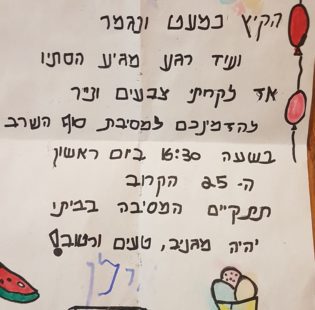 הקיץ כמעט ונגמר
ועוד רגע מגיע הסתיו
אז לקחתי צבעים ונייר
להזמינכם למסיבת סוף השרב
בשעה 16:30 ביום ראשון
ה- 25 הקרוב
תתקיים המסיבה בביתי
יהיה מגניב, טעים ורטוב!